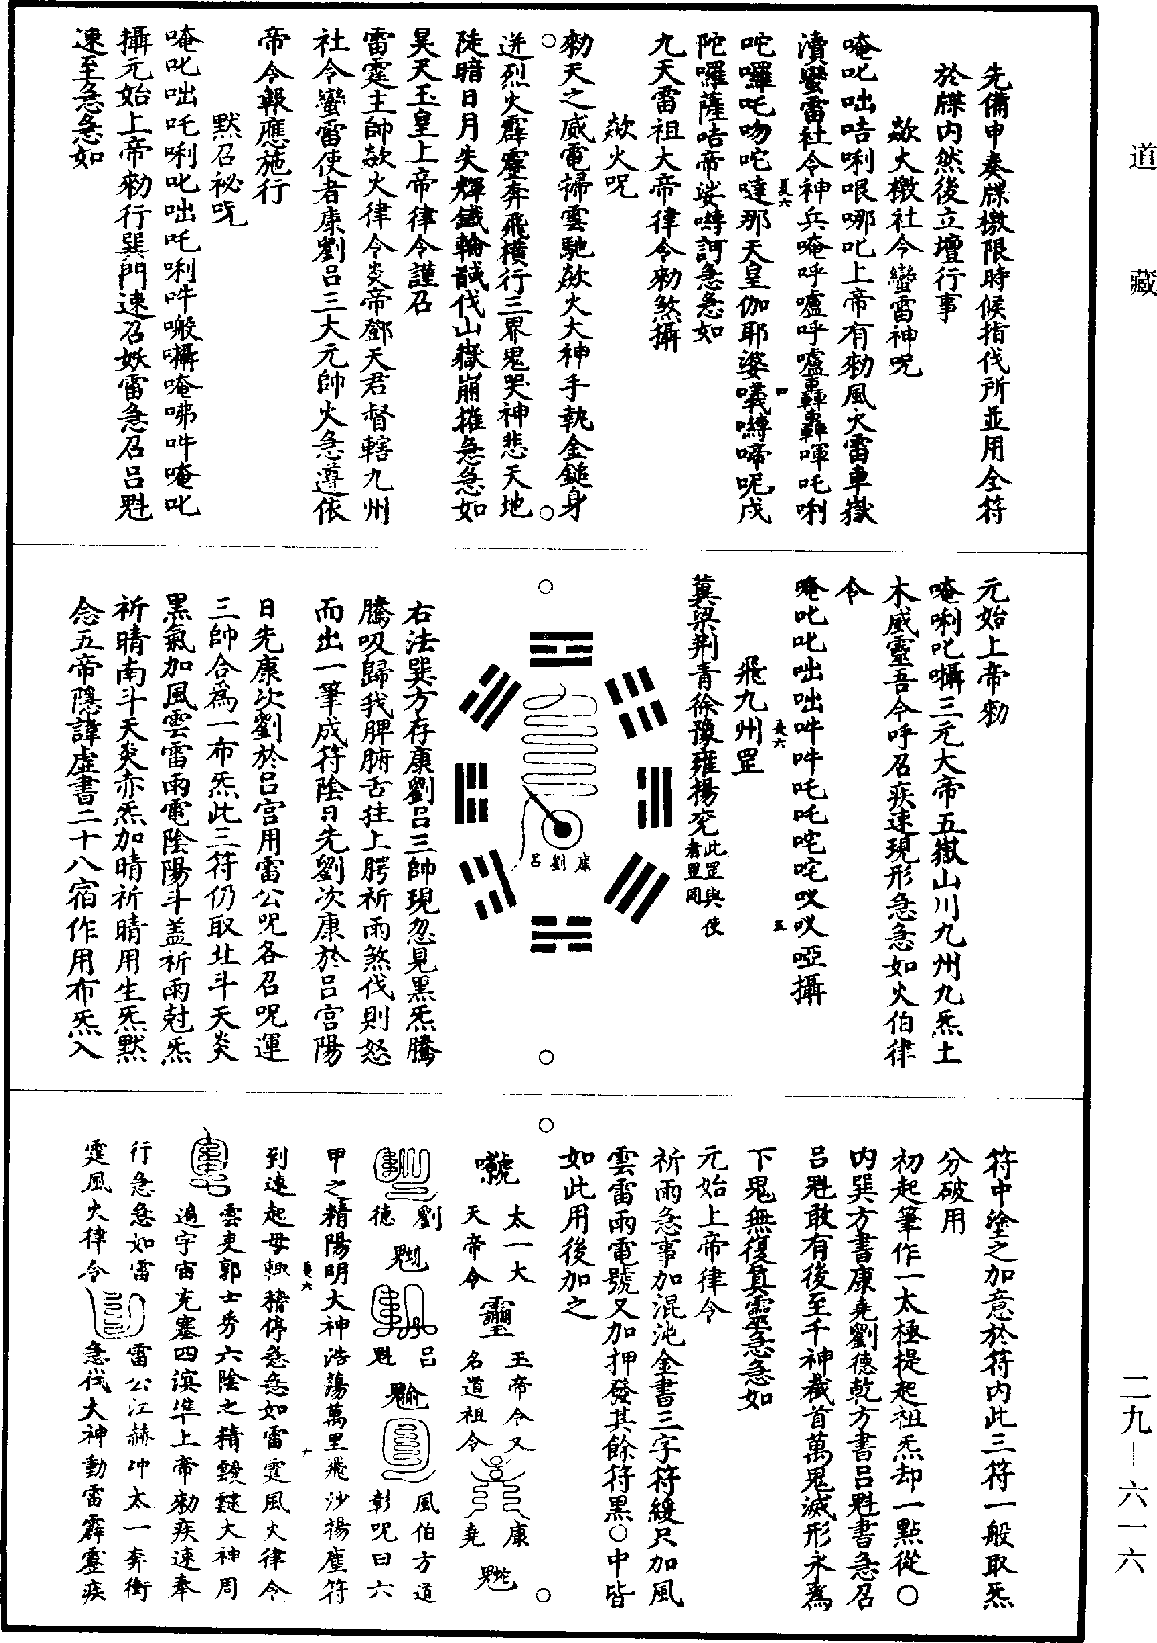 道藏
先備申奏牒檄限時候指伐所並用全符
於牒內然後立壇行事
欻火檄社令蠻雷神呪
唵叱咄咭唎哏哪叱上帝有勑風火雷車嶽
瀆蠻雷社令神兵唵呼嚧呼嚧轟轟㖷吒唎
咜囉吒吻咜噠那天皇伽耶婆囈嚩啼呢戍
陀囉薩咭帝娑嚩訶急急如
九天雷祖大帝律令勑煞攝
欻火呪
勑天之威電掃雲馳欻火大神手執金鎚身
迸烈火霹靂奔飛橫行三界鬼哭神悲天地
陡暗日月失輝鐵輪馘伐山嶽崩摧急急如
昊天玉皇上帝律令謹召
雷霆主帥欻火律令炎帝鄧天君督轄九州
社令蠻雷使者康劉呂三大元帥火急遵依
帝令報應施行
默召祕呪
唵叱咄吒唎叱咄吒唎吽囐囁唵咈吽唵叱
攝元始上帝勑行巽門速召妖雷急召呂魁
速至急急如
元始上帝勑
唵唎叱囁三元大帝五嶽山川九州九炁土
木威靈吾今呼召疾速現形急急如火伯律
令
唵叱叱咄咄吽吽吒吒咜咜㕛㕛啞攝
飛九州罡
冀梁荆青徐豫雍揚兖此罡與使者罡同
康劉呂
右法巽方存康劉呂三帥現忽見黑炁騰
騰吸歸我脾腑舌拄上腭祈雨煞伐則怒
而出一筆成符陰日先劉次康於呂宮陽
日先康次劉於呂宮用雷公呪各召呪運
三帥合為一布炁此三符仍取北斗天炎
黑氣加風雲雷雨電陰陽斗蓋祈雨尅炁
祈晴南斗天炎赤炁加晴祈晴用生炁默
念五帝隱諱虛書二十八宿作用布炁入
符中塗之加意於符內此三符一般取炁
分破用
初起筆作一太極提起祖炁却一點從○
內巽方書康堯劉德乾方書呂魁書急召
呂魁敢有後至千神截首萬鬼滅形永為
下鬼無復真靈急急如
元始上帝律令
祈雨急事加混沌金書三字符緩只加風
雲雷雨電號又加押發其餘符黑○中皆
如此用後加之
太一大天帝令
玉帝令又名道祖令
康堯
劉德
呂魁
風伯方道彰呪曰六
甲之精陽明大神浩蕩萬里飛沙揚塵符
到速起毋輒稽停急急如雷霆風火律令
雲吏郭士秀六陰之精靉靆大神周
遍宇宙充塞四溟準上帝勑疾速奉
行急急如雷
雷公江赫冲太一奔衝
霆風火律令
急伐大神動雷霹靂疾
二九—六一六